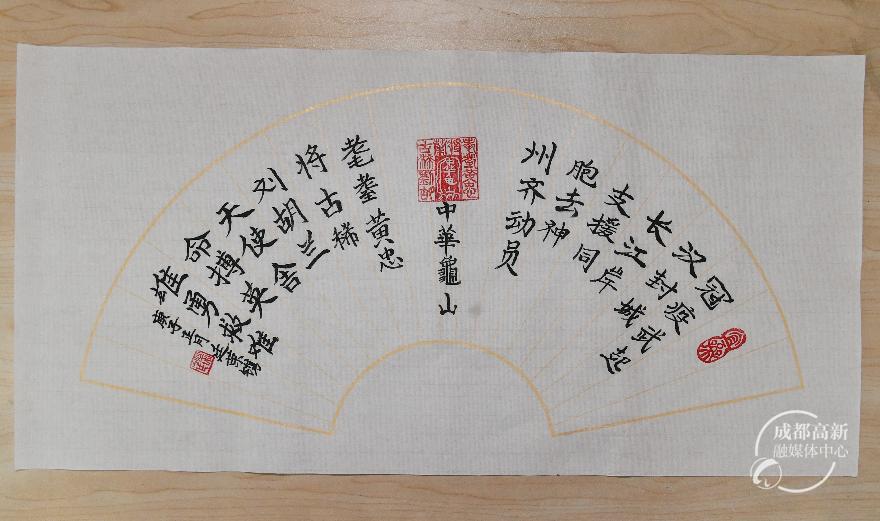 冠疫武起
汉封城
长江岸
支援同
胞去神
州齐动员
中華龜山
耄耋黄忠
将古稀
刘胡兰
天使舍
命搏英
雄勇救难
庚子正月
成都高新
融媒体中心